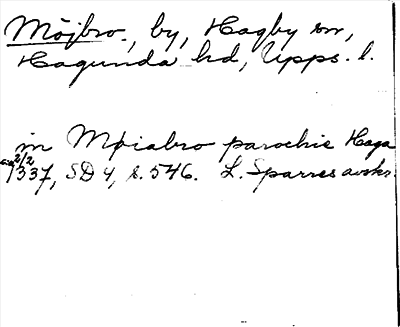 Möjbro, by, Hagby sn,
Hagunda hd, Upps. l.
in Møiabro parochie Haga
2/2
1337, SD 4, s. 546. L. Sparres avskr.